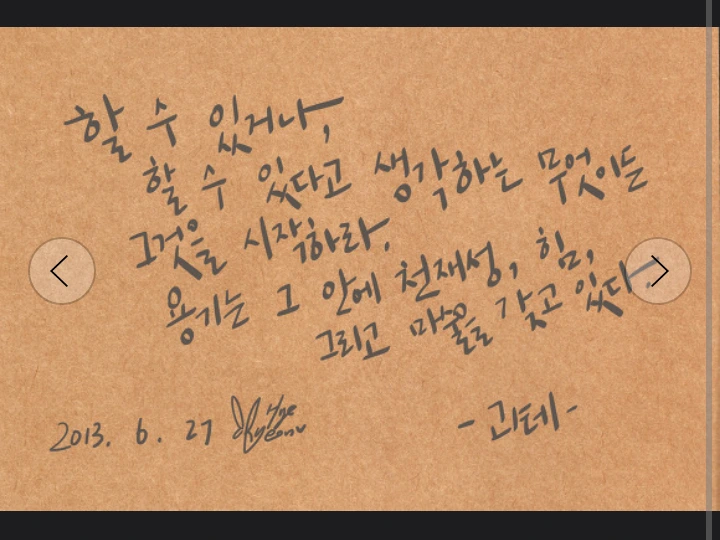 할 수 있거나,
할 수 있다고 생각하는 무엇이든
그것을 시작하라.
용기는 그 안에 천재성, 힘,
그리고 마술을 갖고 있다.
2013. 6. 27
-괴테-